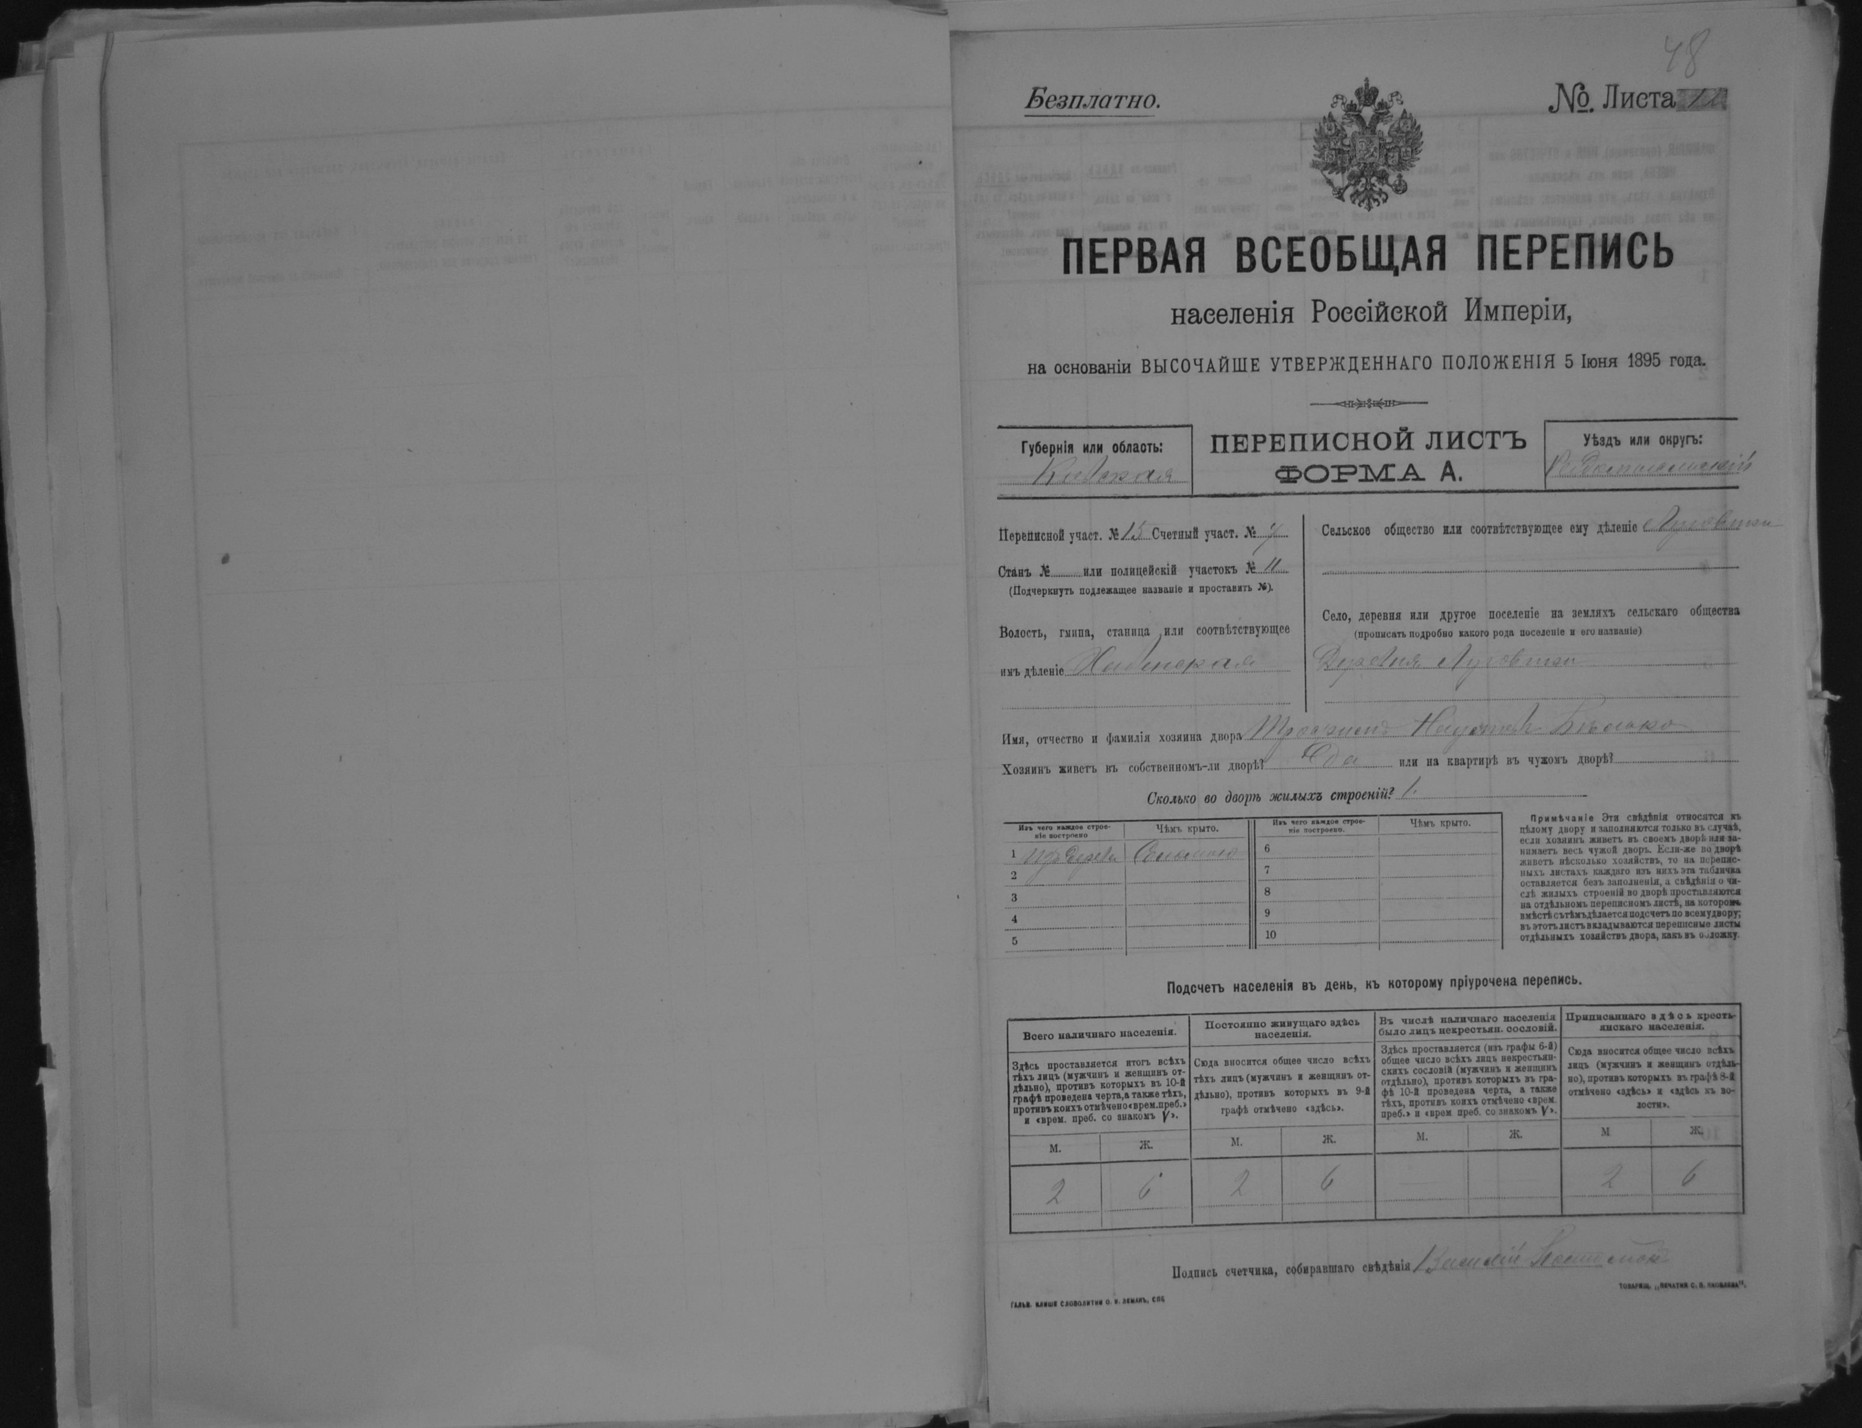 48
Безплатно.
№. Листа
ПЕРВАЯ ВСЕОБЩАЯ ПЕРЕПИСЬ
населенія Россійской Имперіи,
на основаніи ВЫСОЧАЙШЕ УТВЕРЖДЕННАГО ПОЛОЖЕНІЯ 5 Іюня 1895 года.
Губернія или область:
Кіевская
ПЕРЕПИСНОЙ ЛИСТЪ
ФОРМА А.
Уѣздъ или округъ:
Радомысльскій
Переписной участ. № 15 Счетный участ. № 7
Станъ № или полицейскій участокъ № 11
(Подчеркнуть подлежащее названіе и проставить №).
Волость, гмина, станица или соотвѣтствующее
имъ дѣленіе Хабенская
Сельское общество или соотвѣтствующее ему дѣленіе
Село, деревня или другое поселеніе на земляхъ сельскаго общества
(прописать подробно какого рода поселеніе и его названіе)
Деревня
Имя, отчество и фамилія хозяина двора
Хозяинъ живетъ въ собственномъ-ли дворѣ? Да или на квартирѣ въ чужомъ дворѣ?
Сколько во дворѣ жилыхъ строеній? 1.
Изъ чего каждое строе-
ніе построено
Чѣмъ крыто.
1 Изъ дерева Соломою
2
3
4
5
Изъ чего каждое строе-
ніе построено.
Чѣмъ крыто.
6
7
8
9
10
Примѣчаніе Эти свѣдѣнія относятся къ
цѣлому двору и заполняются только въ случаѣ,
если хозяинъ живетъ въ своемъ дворѣ или за-
нимаетъ весь чужой дворъ. Если-же во дворѣ
живетъ нѣсколько хозяйствъ, то на перепис-
ныхъ листахъ каждаго изъ нихъ эта табличка
оставляется безъ заполненія, а свѣдѣнія о чи-
слѣ жилыхъ строеній во дворѣ проставляются
на отдѣльномъ переписномъ листѣ, на которомъ
вмѣстѣ съ тѣмъ дѣлается подсчетъ по всему двору;
въ этотъ листъ вкладываются переписные листы
отдѣльныхъ хозяйствъ двора, какъ въ обложку.
Подсчетъ населенія въ день, къ которому пріурочена перепись.
Всего наличнаго населенія.
Здѣсь проставляется итогъ всѣхъ
тѣхъ лицъ (мужчинъ и женщинъ от-
дѣльно), противъ которыхъ въ 10-й
графѣ проведена черта, а также тѣхъ,
противъ коихъ отмѣчено «врем. преб.»
и «врем. преб. со знакомъ V».
М. Ж.
2 6
Постоянно живущаго здѣсь
населенія.
Сюда вносится общее число всѣхъ
тѣхъ лицъ (мужчинъ и женщинъ от-
дѣльно), противъ которыхъ въ 9-й
графѣ отмѣчено «здѣсь».
М. Ж.
2 6
Въ числѣ наличнаго населенія
было лицъ некрестьян. сословій.
Здѣсь проставляется (изъ графы 6-й)
общее число всѣхъ лицъ некрестьян-
скихъ сословій (мужчинъ и женщинъ
отдѣльно), противъ которыхъ въ гра-
фѣ 10-й проведена черта, а также
тѣхъ, противъ коихъ отмѣчено «врем.
преб.» и «врем. преб. со знакомъ V».
М. Ж.
Приписаннаго здѣсь кресть-
янскаго населенія.
Сюда вносится общее число всѣхъ
лицъ (мужчинъ и женщинъ отдѣль-
но), противъ которыхъ въ графѣ 8-й
отмѣчено «здѣсь» и «здѣсь къ во-
лости».
М. Ж.
2 6
Подпись счетчика, собиравшаго свѣдѣнія
ГАЛЬВ. КЛИШЕ СЛОВОЛИТНИ О. И. ЛЕМАНЪ, СПБ.
ТОВАРИЩ. „ПЕЧАТНЯ С. П. ЯКОВЛЕВА“.